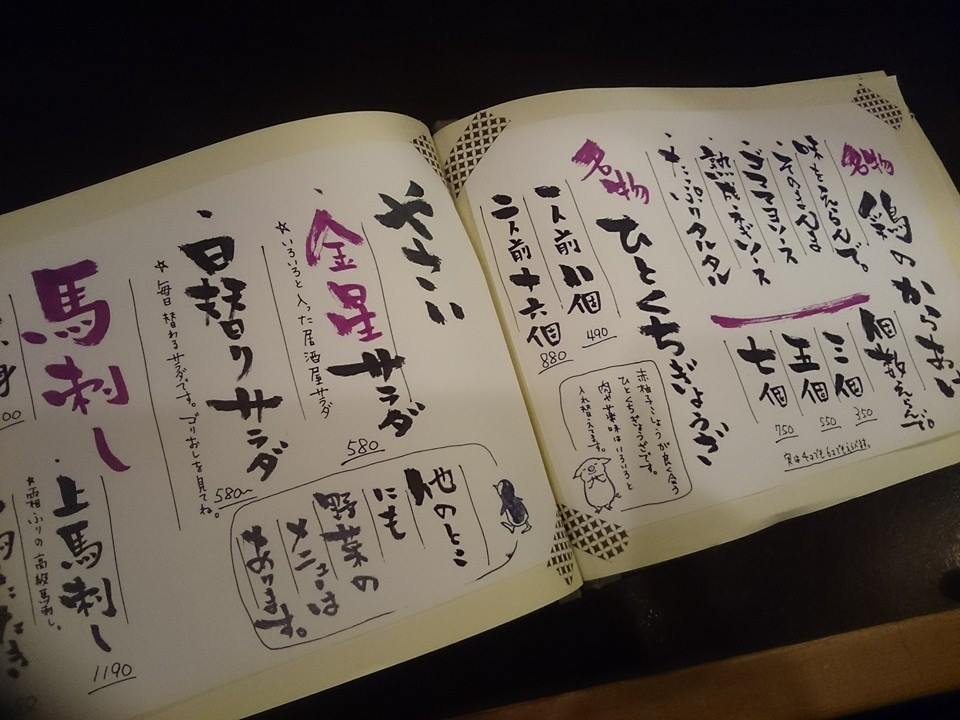 名物
鶏のからあげ
味をえらんで。
・そのまんま
・ゴママヨソース
・熟成ネギソース
・たっぷりタルタル
個数えらんで。
三個
350
五個
550
七個
750
実は4コでも6コでもえらべます。
名物
ひとくちぎょうざ
一人前 八個
490
二人前 十六個
880
赤柚子こしょうが良く合う
ひとくちぎょうざです。
肉や薬味はいろいろと
入れ替えてます。
やさい
・金星サラダ
☆いろいろと入った居酒屋サラダ
580
・日替りサラダ
☆毎日替わるサラダです。ゴリおしを見てね。
580~
他のとこ
にも
野菜の
メニューは
やあります。
馬刺し
・上馬刺し
☆霜ふりの高級馬刺し。
1190